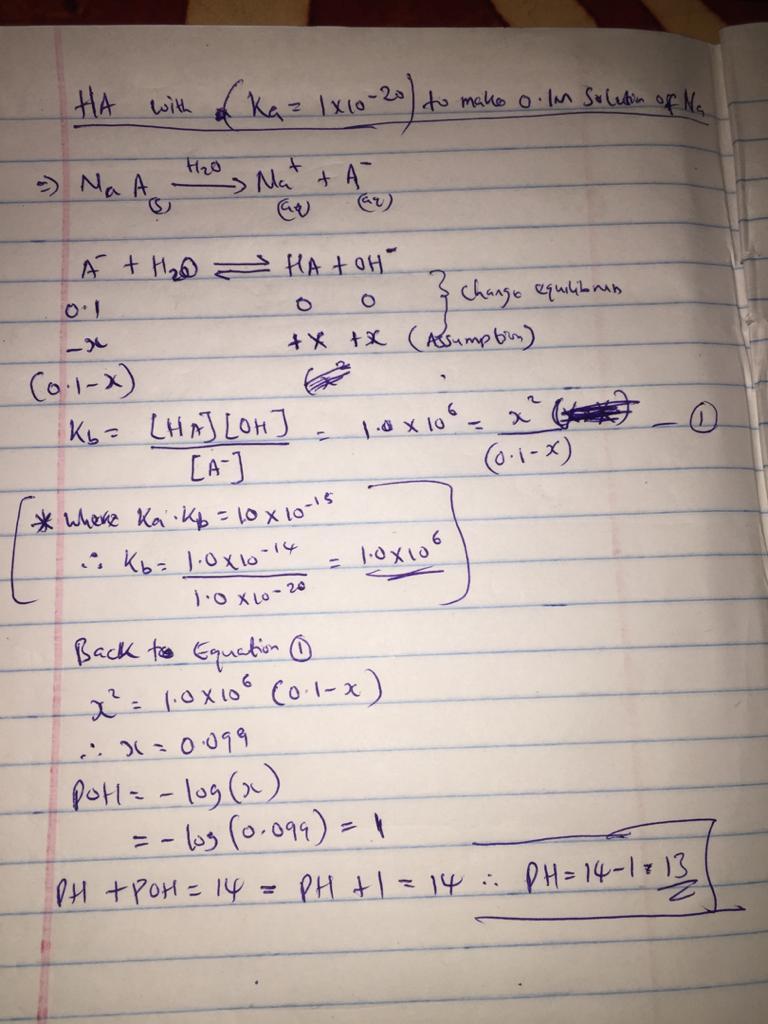 HA with (Ka = 1x10⁻²⁰) to make 0.1M Solution of Na
=> NaA(s) —H2O→ Na⁺(aq) + A⁻(aq)
A⁻ + H2O ⇌ HA + OH⁻
0.1 0 0 } Change equilibrium
-x +x +x (Assumption)
(0.1-x)
Kb = [HA][OH] / [A⁻] = 1.0 x 10⁶ = x² / (0.1-x) — ①
* where Ka·Kb = 10 x 10⁻¹⁵
∴ Kb = 1.0x10⁻¹⁴ / 1.0 x10⁻²⁰ = 1.0x10⁶
Back to Equation ①
x² = 1.0x10⁶ (0.1-x)
∴ x = 0.099
POH = - log(x)
= - log(0.099) = 1
PH + POH = 14 = PH + 1 = 14 ∴ PH = 14-1 = 13